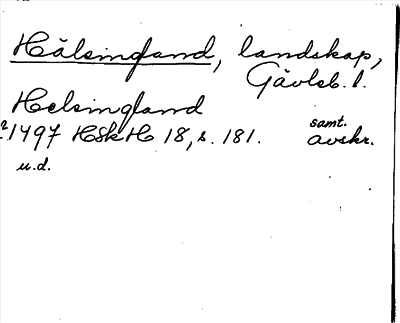 Hälsingland, landskap,
Gävleb. l.
Helsingland
?1497 HSkH 18, s. 181. samt. avskr.
u.d.